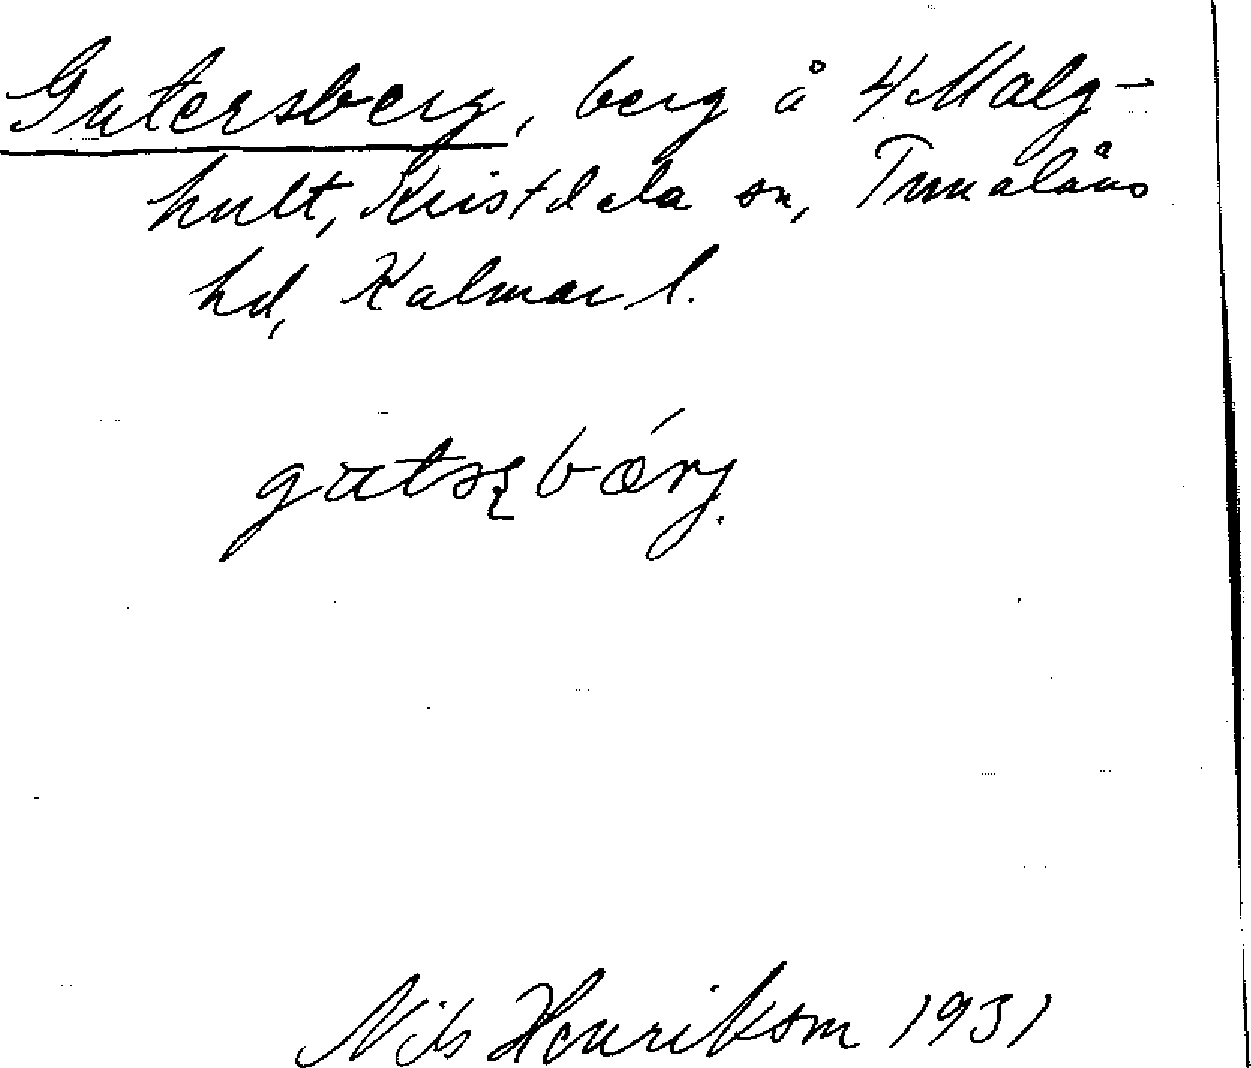 Gutersberg, berg å 4 Malg-
hult, Kristdala sn, Tunaläns
hd, Kalmar l.
Nils Henrikson 1931